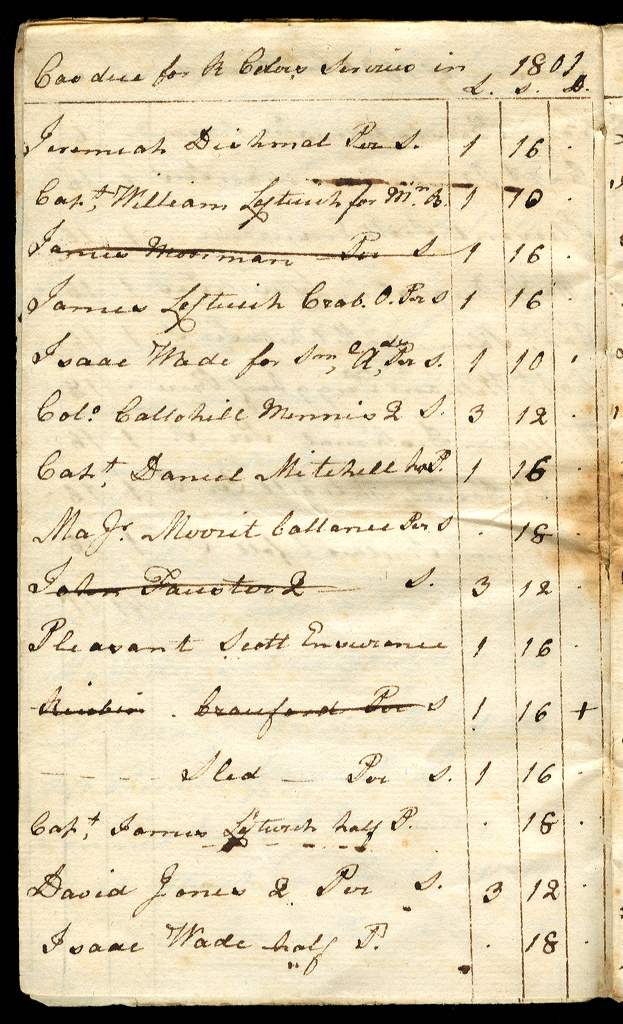 for R Celers Services in 1801
L. S. D.
Jeremiah Dishmal Per S. 1 16
Capt, William Leftwich for Mr. B. 1 10
James Moorman Per S 1 16
James Leftwich Crab. O. Per S 1 16
Isaac Wade for Per S. 1 10
Colo Callohill Mennis 2 S. 3 12
Capt. Daniel Mitchell h P. 1 16
Majr. Moorit Callance Per S . 18
John Fauster 2 S. 3 12
Pleasant Scott Ensurance 1 16
Reubin Crauford Per S 1 16 +
Sled Per S. 1 16
Capt, James Leftwich half P. . 18
David Jones 2 Per S. 3 12
Isaac Wade half P. . 18